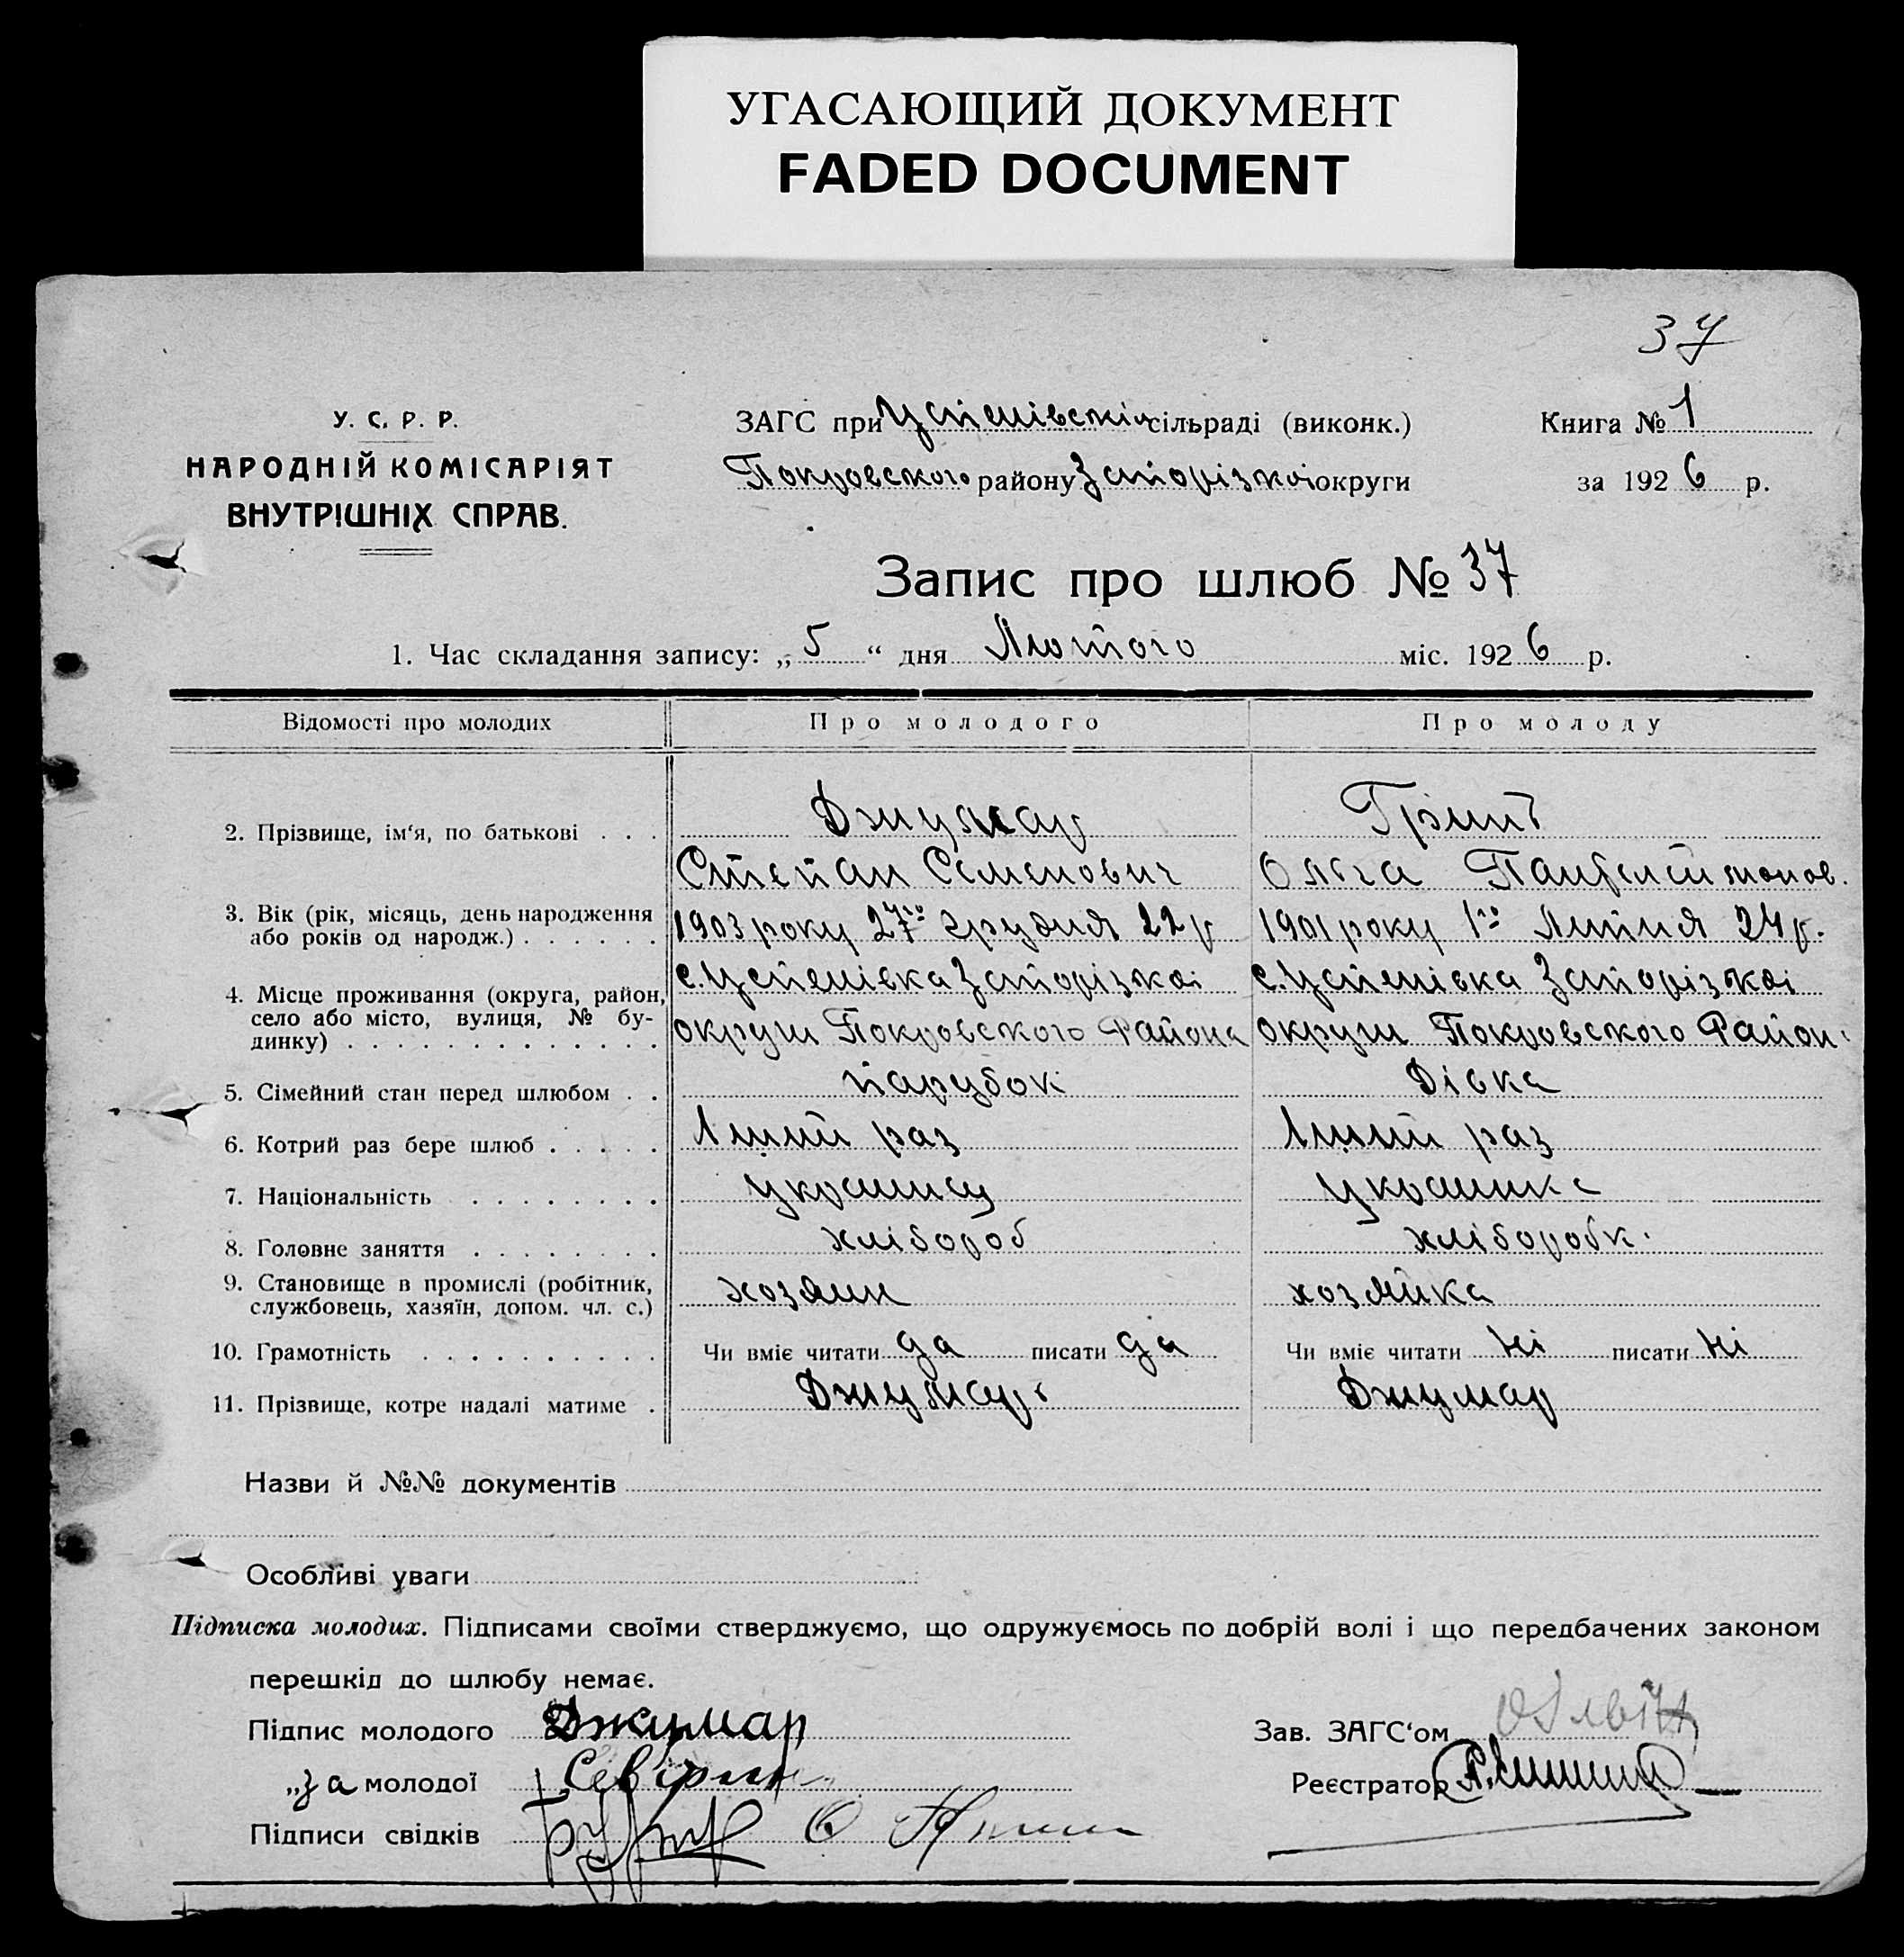 УГАСАЮЩИЙ ДОКУМЕНТ
FADED DOCUMENT
37
У. С. Р. Р.
НАРОДНІЙ КОМІСАРІЯТ
ВНУТРІШНІХ СПРАВ.
ЗАГС при Успенівській сільраді (виконк.)
Покровського району Запорізької округи
Книга № 1
за 1926 р.
Запис про шлюб № 37
1. Час складання запису: „5“ дня Лютого міс. 1926 р.
Відомості про молодих Про молодого Про молоду
2. Прізвище, ім‘я, по батькові . . . Джумар Гріши
Степан Семенович Ольга
3. Вік (рік, місяць, день народження 1903 року 27го грудня 22 р 1901 року 1го Липня 24 р.
або років од народж.) . . . . . .
4. Місце проживання (округа, район, с. Успенівка Запорізкоі с. Успенівка Запорізкоі
село або місто, вулиця, № бу- округи Покровского Района округи Покровского Район
динку) . . . . . . . . . . . . .
5. Сімейний стан перед шлюбом . . парубок Дівка
6. Котрий раз бере шлюб . . . . . 1ший раз 1ший раз
7. Національність . . . . . . . . українец українка
8. Головне заняття . . . . . . . . хлібороб хліборобк.
9. Становище в промислі (робітник, хозяин хозяйка
службовець, хазяїн, допом. чл. с.)
10. Грамотність . . . . . . . . . . Чи вміє читати да писати да Чи вміє читати ні писати ні
11. Прізвище, котре надалі матиме . Джумар Джумар
Назви й №№ документів
Особливі уваги
Підписка молодих. Підписами своїми стверджуємо, що одружуємось по добрій волі і що передбачених законом
перешкід до шлюбу немає.
Підпис молодого Джумар
Зав. ЗАГС‘ом
„за молодої
Реєстратор
Підписи свідків